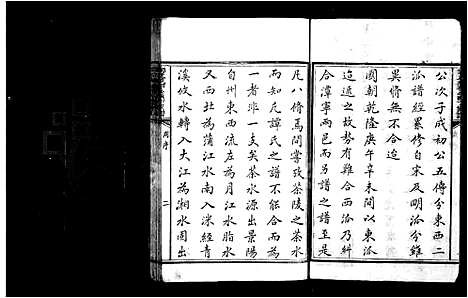 公次子成初公五傳分東西二
派譜經累修自宋及明派分雖
異脩無不合迨
國朝乾隆庚午辛未間以東派
迢遠之故勢有難合西派乃糾
合潭寧兩邑而另為之譜至是
凡八脩焉間嘗攷茶陵之茶水
而知氏譚氏之譜不能合而為
一者非一支矣茶水源出景陽
自州東西流左為月江水脂水
又西北為蒲江水南入洣經青
溪攸水轉入大江為湘水固出
二